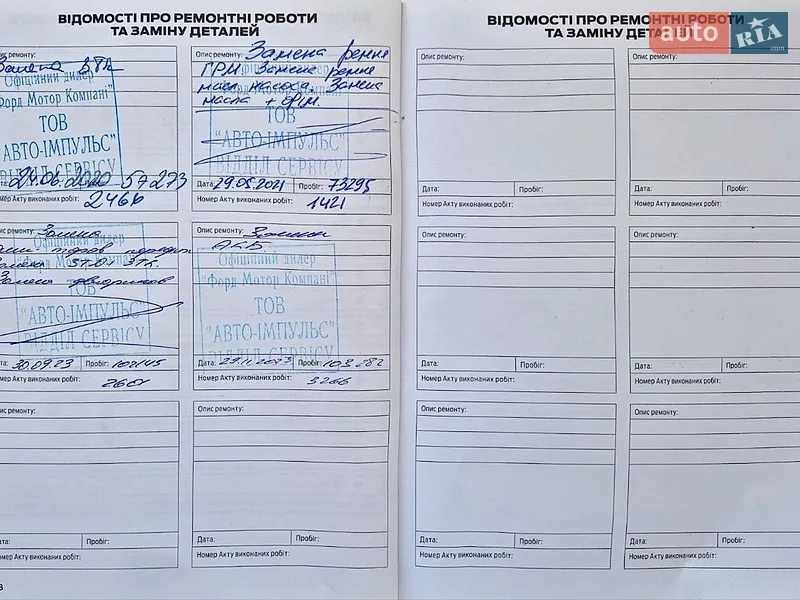 ВІДОМОСТІ ПРО РЕМОНТНІ РОБОТИ
ТА ЗАМІНУ ДЕТАЛЕЙ
ис ремонту:
Замена
Офіційний дилер
Форд Мотор Компані"
ТОВ
АВТО-ІМПУЛЬС"
ВІДДІЛ СЕРВІСУ
24.06.2020 57273
мер Акту виконаних робіт:
2466
Опис ремонту: Замена ремня
ГРМ. Замена ремня
масл. насоса. Замена
масла + фил.
ТОВ
"АВТО-ІМПУЛЬС"
ВІДДІЛ СЕРВІСУ
Дата: 29.05.2021 Пробіг: 73295
Номер Акту виконаних робіт:
1421
ис ремонту: Замена
Офіційний дилер
Форд Мотор Компані"
ТОВ
"АВТО-ІМПУЛЬС"
ВІДДІЛ СЕРВІСУ
та: 30.09.23 Пробіг: 102145
мер Акту виконаних робіт:
2601
Опис ремонту: Замена
АКБ
Офіційний дилер
"Форд Мотор Компані"
ТОВ
"АВТО-ІМПУЛЬС"
ВІДДІЛ СЕРВІСУ
Дата: 29.11.2023 Пробіг: 103 282
Номер Акту виконаних робіт:
3266
ис ремонту:
та: Пробіг:
мер Акту виконаних робіт:
Опис ремонту:
Дата: Пробіг:
Номер Акту виконаних робіт:
ВІДОМОСТІ ПРО РЕМОНТНІ РОБОТИ
ТА ЗАМІНУ ДЕТАЛЕЙ
auto RIA .com
Опис ремонту:
Дата: Пробіг:
Номер Акту виконаних робіт:
Опис ремонту:
Дата: Пробіг:
Номер Акту виконаних робіт:
Опис ремонту:
Дата: Пробіг:
Номер Акту виконаних робіт:
Опис ремонту:
Дата: Пробіг:
Номер Акту виконаних робіт:
Опис ремонту:
Дата: Пробіг:
Номер Акту виконаних робіт:
Опис ремонту:
Дата: Пробіг:
Номер Акту виконаних робіт: